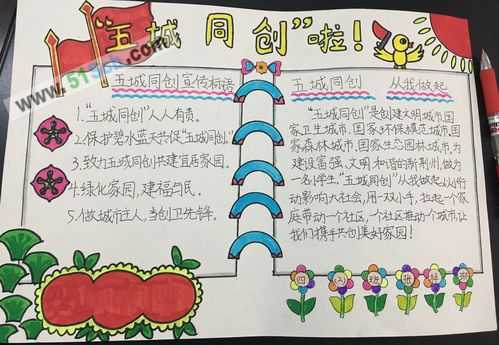 "五城同创"啦！
五城同创宣传标语
1."五城同创"人人有责。
2.保护碧水蓝天共促"五城同创"
3.致力五城同创共建宜居家园。
4.绿化家园，建福与民。
5.做城市主人，当创卫先锋。
五城同创 从我做起
"五城同创"是创建文明城市国
家卫生城市、国家环保模范城市、国
家森林城市、国家生态园林城市，为
建设富强、文明、和谐的新荆州，做为
一名小学生"五城同创"从我做起从小行
动影响大社会，用一双小手，拉起一个家
庭带动一个社区，一个社区推动一个城市让
我们携手共创美好家园！
四
班